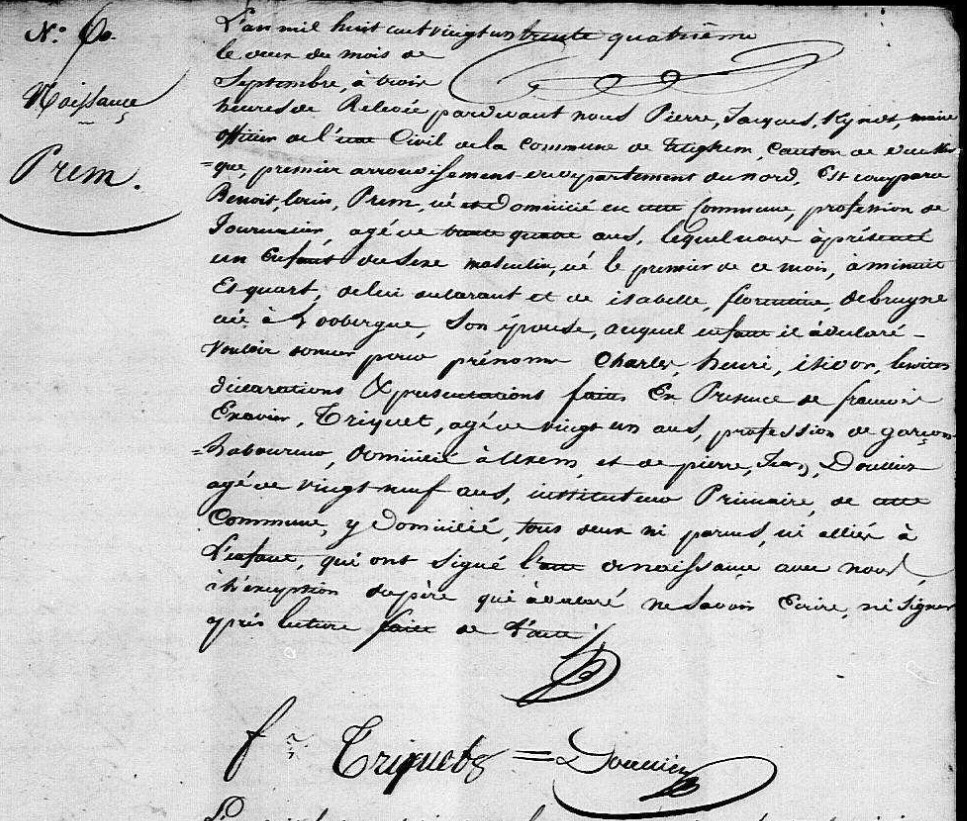 N.° 60.
Naissance
Prem.
L'an mil huit cent trente quatrième
le deux du mois de
Septembre, à trois
heures de Relevée pardevant nous Pierre, Jacques, maire
officier de l'état Civil de la Commune de Canton de
=que, premier arrondissement du département du nord, Est comparu
Benoit, louis, Prem, né et Domicilié en cette Commune, profession de
Journalier, agé de trente quatre ans, lequel nous à présenté
un Enfant du Sexe masculin, né le premier de ce mois, à minuit
Et quart, de lui déclarant et de isabelle, florentine, debruyne
née à Looberque, Son épouse, auquel enfant il à déclaré
vouloir donner pour prénoms Charles, henri, isidor, lesdites
déclarations & présentations faites En Présence de francois
Exavier, Triquet, agé de vingt un ans, profession de garçon
=Laboureur, domicilié à Uxem, et de pierre, Jean,
agé de vingt neuf ans, instituteur Primaire, de cette
Commune, y Domicilié, tous deux ni parens, ni alliés à
L'enfant, qui ont Signé l'acte de naissance avec nous
à l'exception du père qui à déclaré ne Savoir Ecrire, ni Signer
après lecture faite de l'acte
Triquet